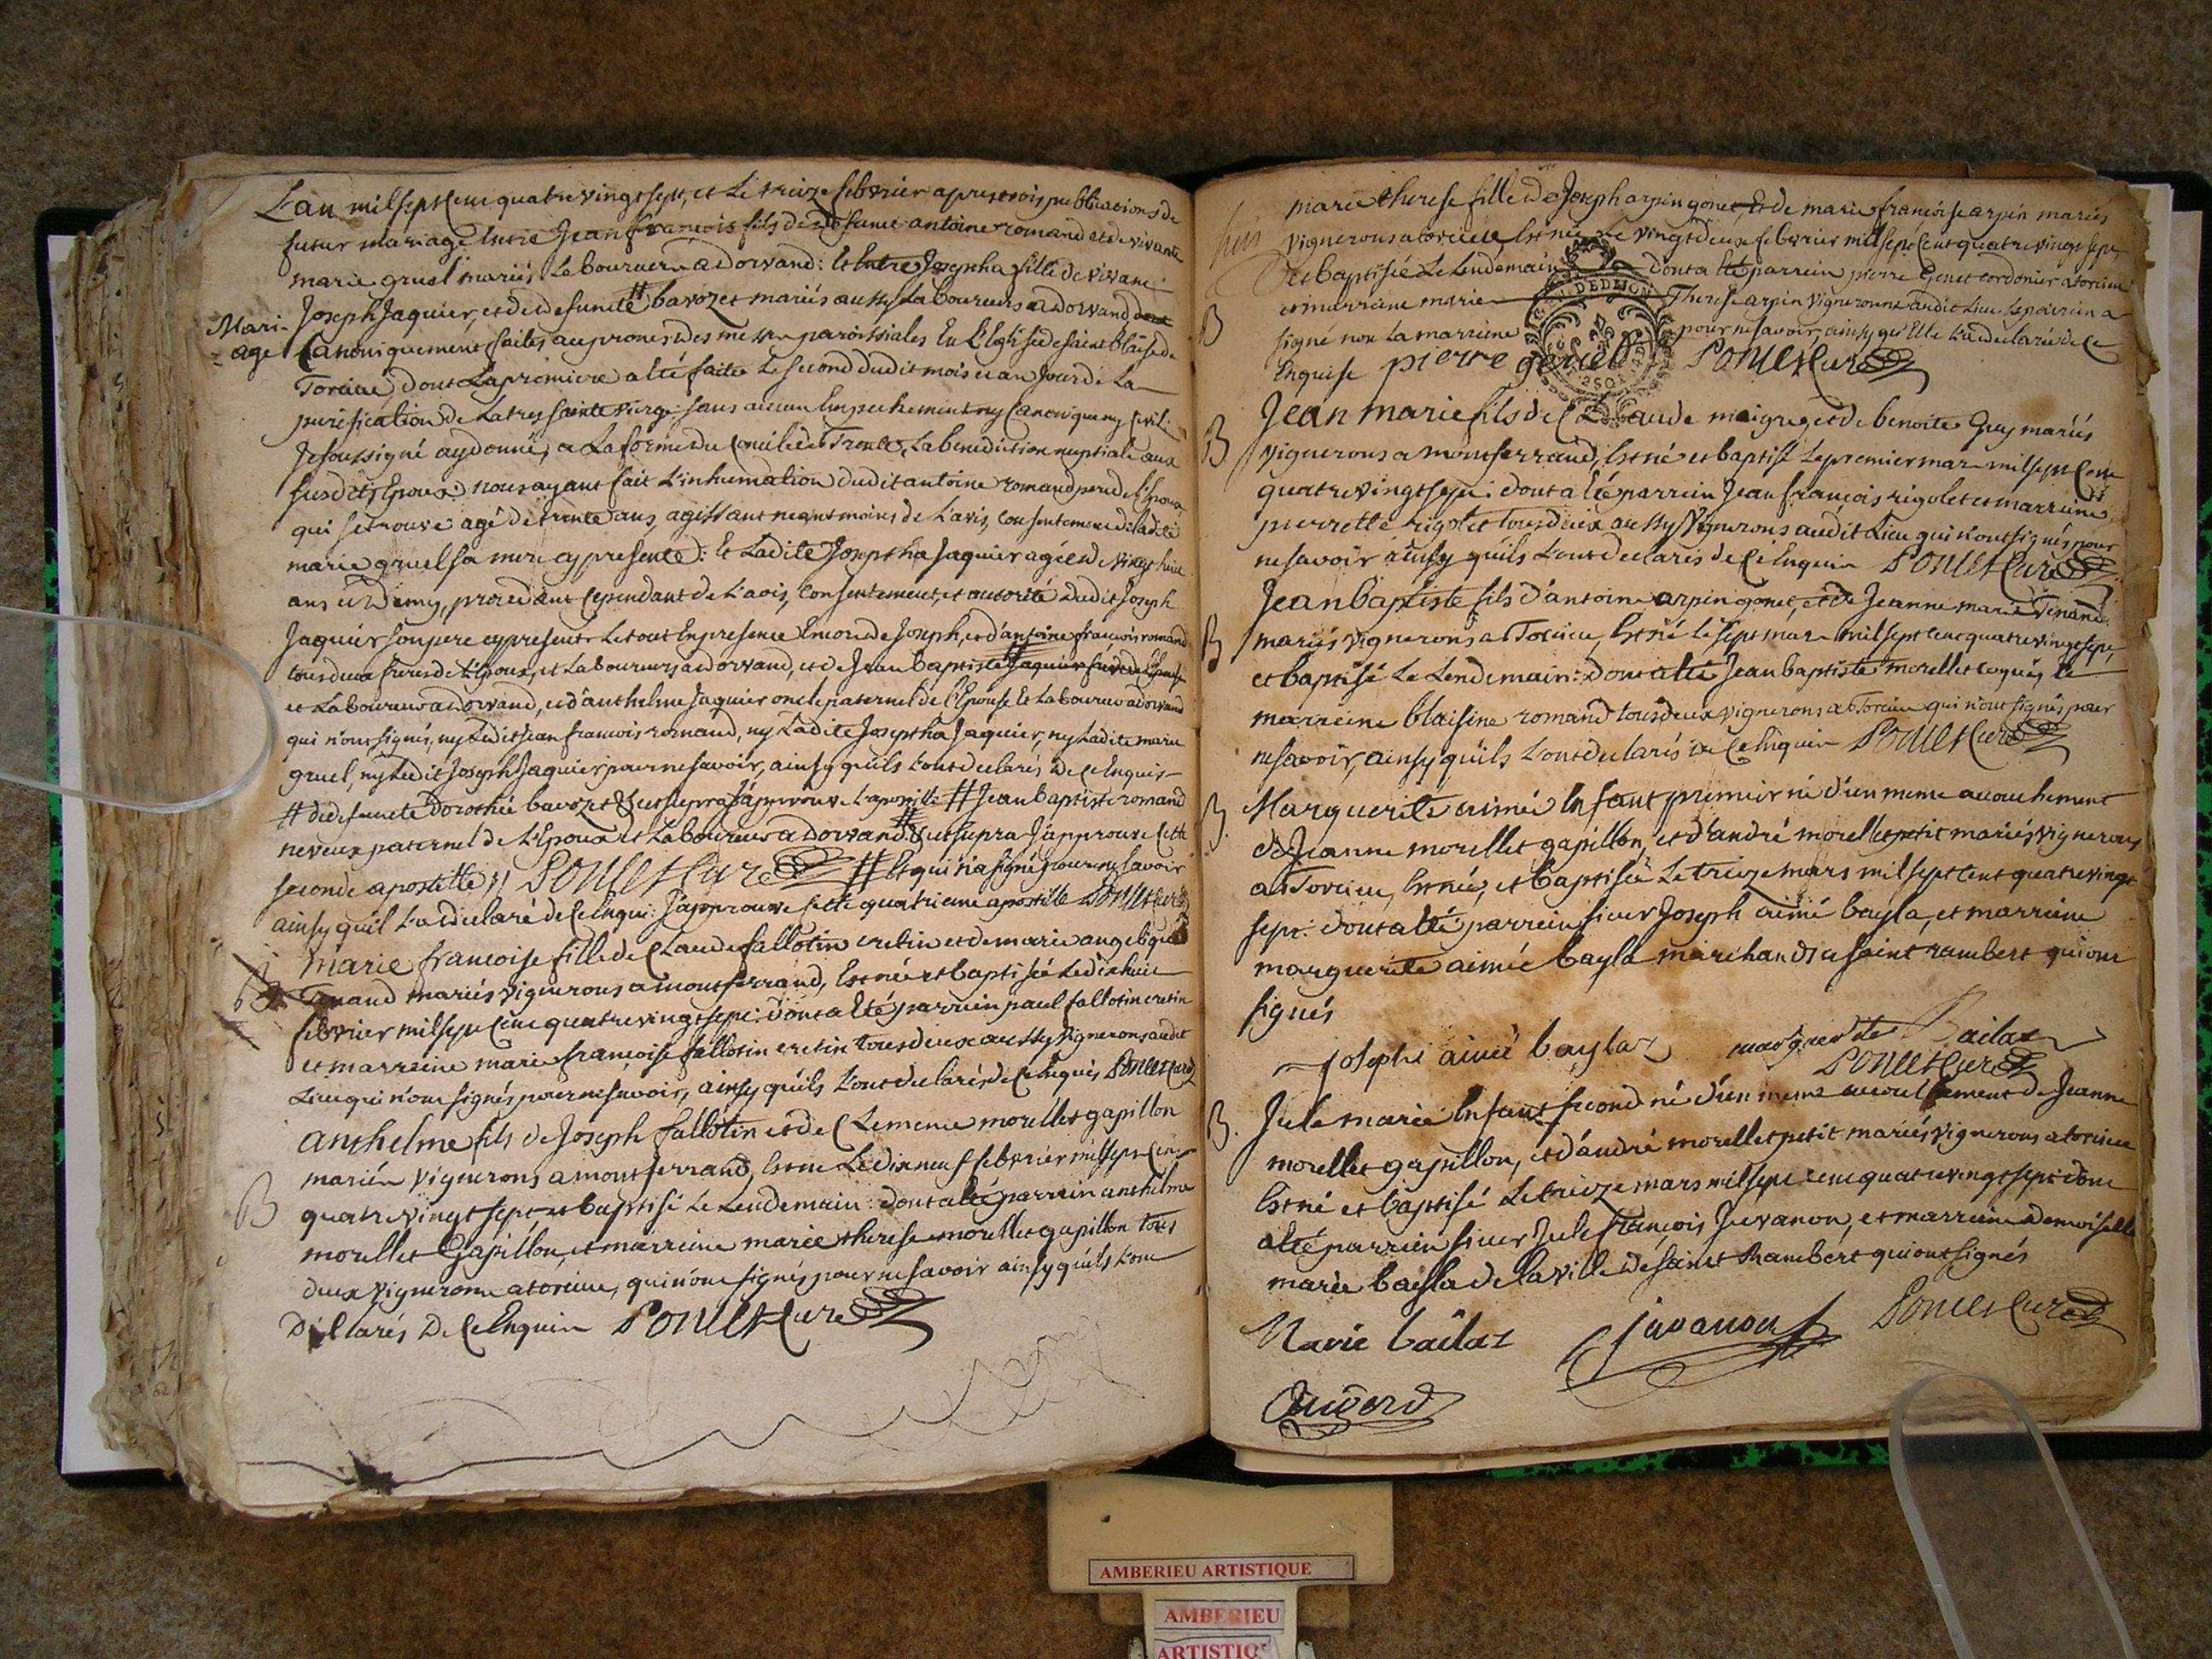 L'an mil sept cent quatre vingt sept, et le treize febvrier apres trois publications de
futur mariage entre Jean françois fils de defunct antoine romand et de vivante
marie gruel mariés laboureurs a dorvand: et entre Josephta fille de vivant
Joseph Jaquier, et de defuncte # bavozet mariés aussy laboureurs a dorvand
Mari-
-age
Canoniquement faites aux prones des messes paroissiales en L'Eglise de saint blaise de
Torcieu, dont la premiere a eté faite le second dudit mois et an jour de la
purification de la tres sainte vierge sans aucun empechement ny canonique ny civil:
Je soussigné ay donné, a la forme du concile de Trente, la benediction nuptiale aux
susdits Epoux: nous ayant fait l'inhumation dudit antoine romand pere de l'Epoux
qui se trouve agé de trente ans, agissant neantmoins de l'avis, consentement de ladite
marie gruel sa mere cy presente: Et ladite Josephta Jaquier agée de vingt huit
ans et demy, procedant cependant de l'avis, consentement, et autorité dudit Joseph
Jaquier son pere cy present. Le tout en presence encor de Joseph, et d'antoine françois romand
tous deux freres de l'Epoux, et laboureurs a dorvand, et de Jean baptiste Jaquier frere de l'Epouse
et laboureur a dorvand, et d'anthelme Jaquier oncle paternel de l'Epouse et laboureur a dorvand
qui n'ont signés, ny ledit jean françois romand, ny ladite Josephta Jaquier, ny ladite marie
gruel, ny ledit Joseph Jaquier pour ne savoir, ainsy qu'ils l'ont declarés de ce enquis
# de defuncte Dorothée bavozet & ut supra J'approuve l'apostille # Jean baptiste romand
neveux paternel de l'Epoux et laboureur a dorvand. & ut supra J'approuve cette
seconde apostille // Poncet Curé # Et qui n'a signé pour ne savoir
ainsy qu'il l'a declaré de ce enquis: J'approuve cette quatrieme apostille Poncet Curé
marie françoise fille de Claude fallotin cretin et de marie angelique
Tenand mariés vignerons a montferrand, est née et baptisée le dixhuit
febvrier mil sept cent quatre vingt sept: dont a eté parrein paul fallotin cretin
et marreine marie françoise fallotin cretin tous deux aussy vignerons audit
Lieu qui n'ont signés pour ne savoir, ainsy qu'ils l'ont declarés de ce enquis Poncet Curé
anthelme fils de Joseph fallotin et de Clemence morellet gapillon
mariés vignerons a montferrand, est né le dix neuf febvrier mil sept cent
B
quatre vingt sept et baptisé le lendemain: dont a eté parrein anthelme
morellet Gapillon, et marreine marie therese morellet gapillon tous
deux vignerons a torcieu, qui n'ont signés pour ne savoir ainsy qu'ils l'ont
Declarés De ce enquis Poncet Curé
marie therese fille de Joseph arpin gonet, Et de marie françoise arpin mariés
vignerons a torcieu est née le vingt deux febvrier mil sept cent quatre vingt sept,
et baptisée le lendemain dont a eté parrein pierre Genet cordonier a torcieu
B
et marreine marie Therese arpin vigneronne audit lieu le parrein a
signé non la marreine pour ne savoir, ainsy qu'Elle l'a declarée de ce
Enquise pierre genet Poncet Curé
B
Jean marie fils de Claude maigre, et de benoite Guy mariés
vignerons a montferrand, est né et baptisé le premier mars mil sept cent
quatre vingt sept: dont a eté parrein Jean françois rigolet et marreine
pierrette rigolet tous deux aussy vignerons audit Lieu qui n'ont signés pour
ne savoir ainsy qu'ils l'ont declarés de ce enquis Poncet Curé
B
Jean baptiste fils d'antoine arpin gonet, et de Jeanne marie Tenand
mariés vignerons a Torcieu, est né le sept mars mil sept cent quatre vingt sept,
et baptisé le lendemain: dont a eté Jean baptiste morellet coqué, et
marreine blaisine romand tous deux vignerons a Torcieu qui n'ont signés pour
ne savoir, ainsy qu'ils l'ont declarés de ce enquis Poncet Curé
B.
Marguerite aimée enfant premier né d'un meme accouchement
de Jeanne morellet gapillon, et d'andré morellet petit mariés vignerons
a Torcieu, est née, et baptisée le treize mars mil sept cent quatre vingt
sept: dont a eté parrein sieur Joseph aimé bayla, et marreine
marguerite aimée bayla marchands a saint rambert qui ont
signés
Joseph aimé baylaz marguerite Bailaz
Poncet Curé
B.
Jule marie enfant second né d'un meme accouchement de Jeanne
morellet gapillon, et d'andré morellet petit mariés vignerons a torcieu
est né et baptisé le treize mars mil sept cent quatre vingt sept: dont
a eté parrein sieur Jule françois Juvanon, et marreine demoiselle
marie bayla de la ville de saint Rambert qui ont signés
Marie bailaz juvanon Poncet Curé
AMBERIEU ARTISTIQUE
AMBERIEU